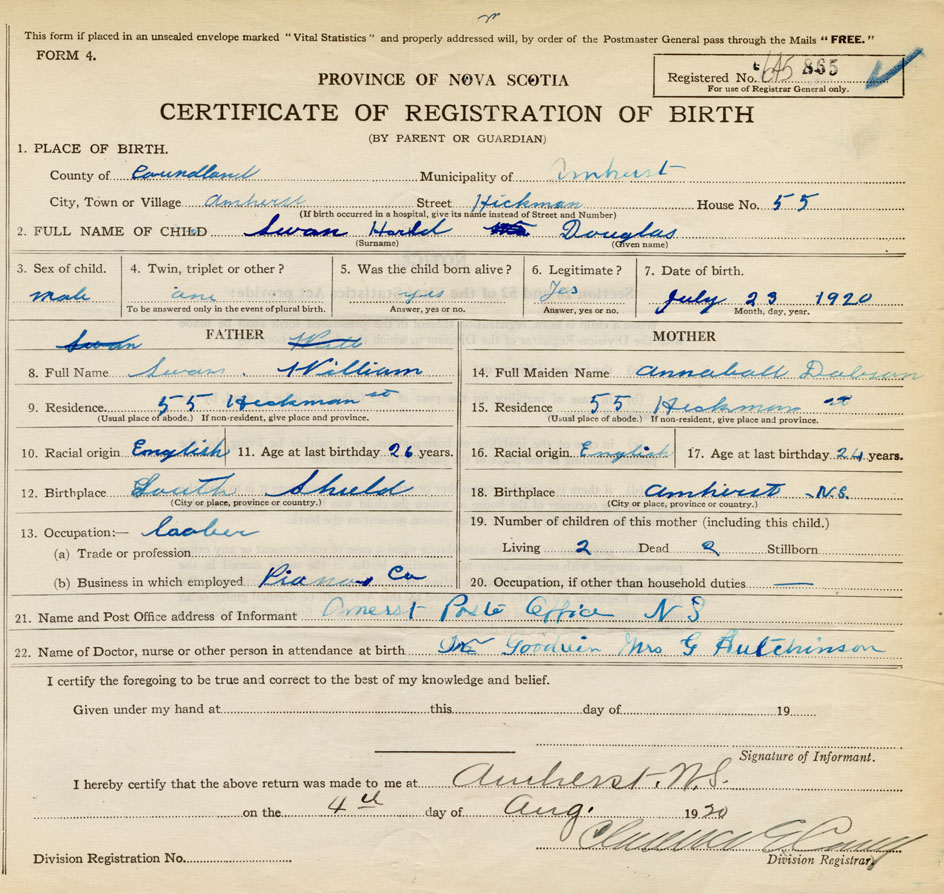 This form if placed in an unsealed envelope marked "Vital Statistics" and properly addressed will, by order of the Postmaster General pass through the Mails "FREE."
FORM 4.
PROVINCE OF NOVA SCOTIA
Registered No. 645 865
For use of Registrar General only.
CERTIFICATE OF REGISTRATION OF BIRTH
(BY PARENT OR GUARDIAN)
1. PLACE OF BIRTH.
County of Coundland Municipality of Amherst
City, Town or Village Amherst Street Hickman House No. 55
(If birth occurred in a hospital, give its name instead of Street and Number)
2. FULL NAME OF CHILD Swan Harld Douglas
(Surname) (Given name)
3. Sex of child. 4. Twin, triplet or other? 5. Was the child born alive? 6. Legitimate? 7. Date of birth.
male one yes Yes July 23 1920
To be answered only in the event of plural birth. Answer, yes or no. Answer, yes or no. Month, day, year.
Swan FATHER Will MOTHER
8. Full Name Swan. William 14. Full Maiden Name Annaball Dobson
9. Residence 55 Hickman st 15. Residence 55 Hickman st
(Usual place of abode.) If non-resident, give place and province. (Usual place of abode.) If non-resident, give place and province.
10. Racial origin English 11. Age at last birthday 26 years. 16. Racial origin English 17. Age at last birthday 24 years.
12. Birthplace South Shield 18. Birthplace Amhirst N.S.
(City or place, province or country.) (City or place, province or country.)
13. Occupation:— 19. Number of children of this mother (including this child.)
(a) Trade or profession Living 2 Dead Stillborn
(b) Business in which employed Pianos Co 20. Occupation, if other than household duties —
21. Name and Post Office address of Informant Amerst Poste Office N S
22. Name of Doctor, nurse or other person in attendance at birth Dr Goodwin Mrs G Hutchinson
I certify the foregoing to be true and correct to the best of my knowledge and belief.
Given under my hand at this day of 19
Signature of Informant.
I hereby certify that the above return was made to me at Amherst. N.S.
on the 4th day of Aug. 1920
Clarence
Division Registration No. Division Registrar